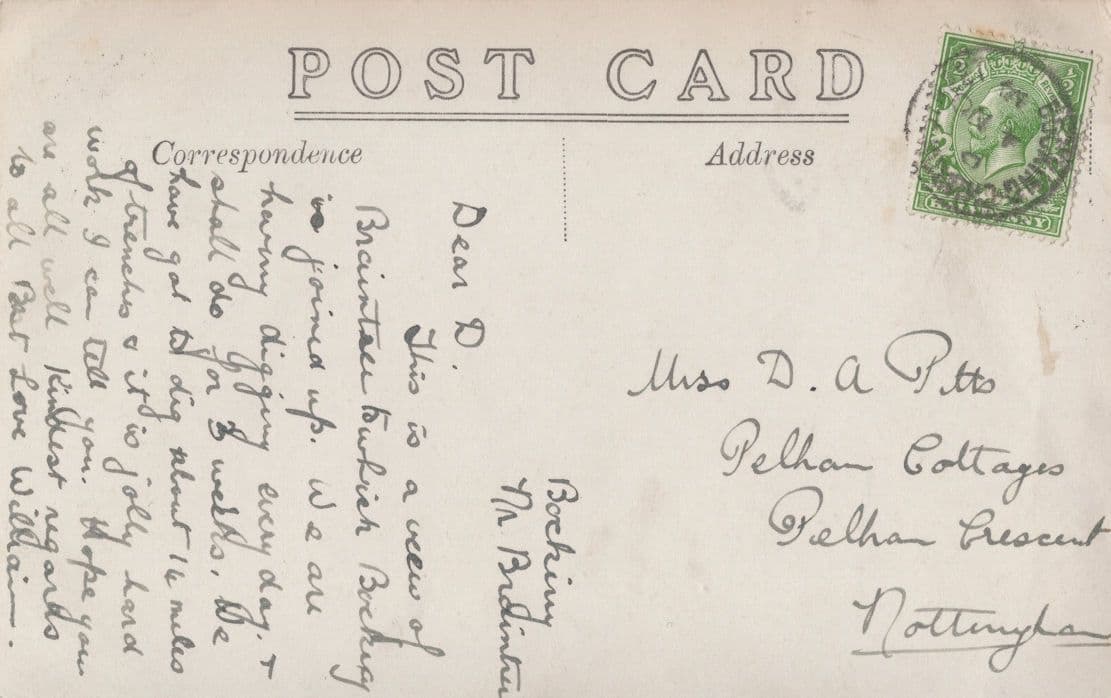 POST CARD
Correspondence
Address
Bocking
Nr. Braintree
Dear D.
This is a view of
Braintree to which Bocking
is joined up. We are
having digging every day. &
shall do for 2 weeks. We
have got to dig about 14 miles
of trenches & it is jolly hard
work I can tell you. Hope you
are all well Kindest regards
to all Best Love William.
Miss D. A Pitts
Pelham Cottages
Pelham Crescent
Nottingham
HALFPENNY